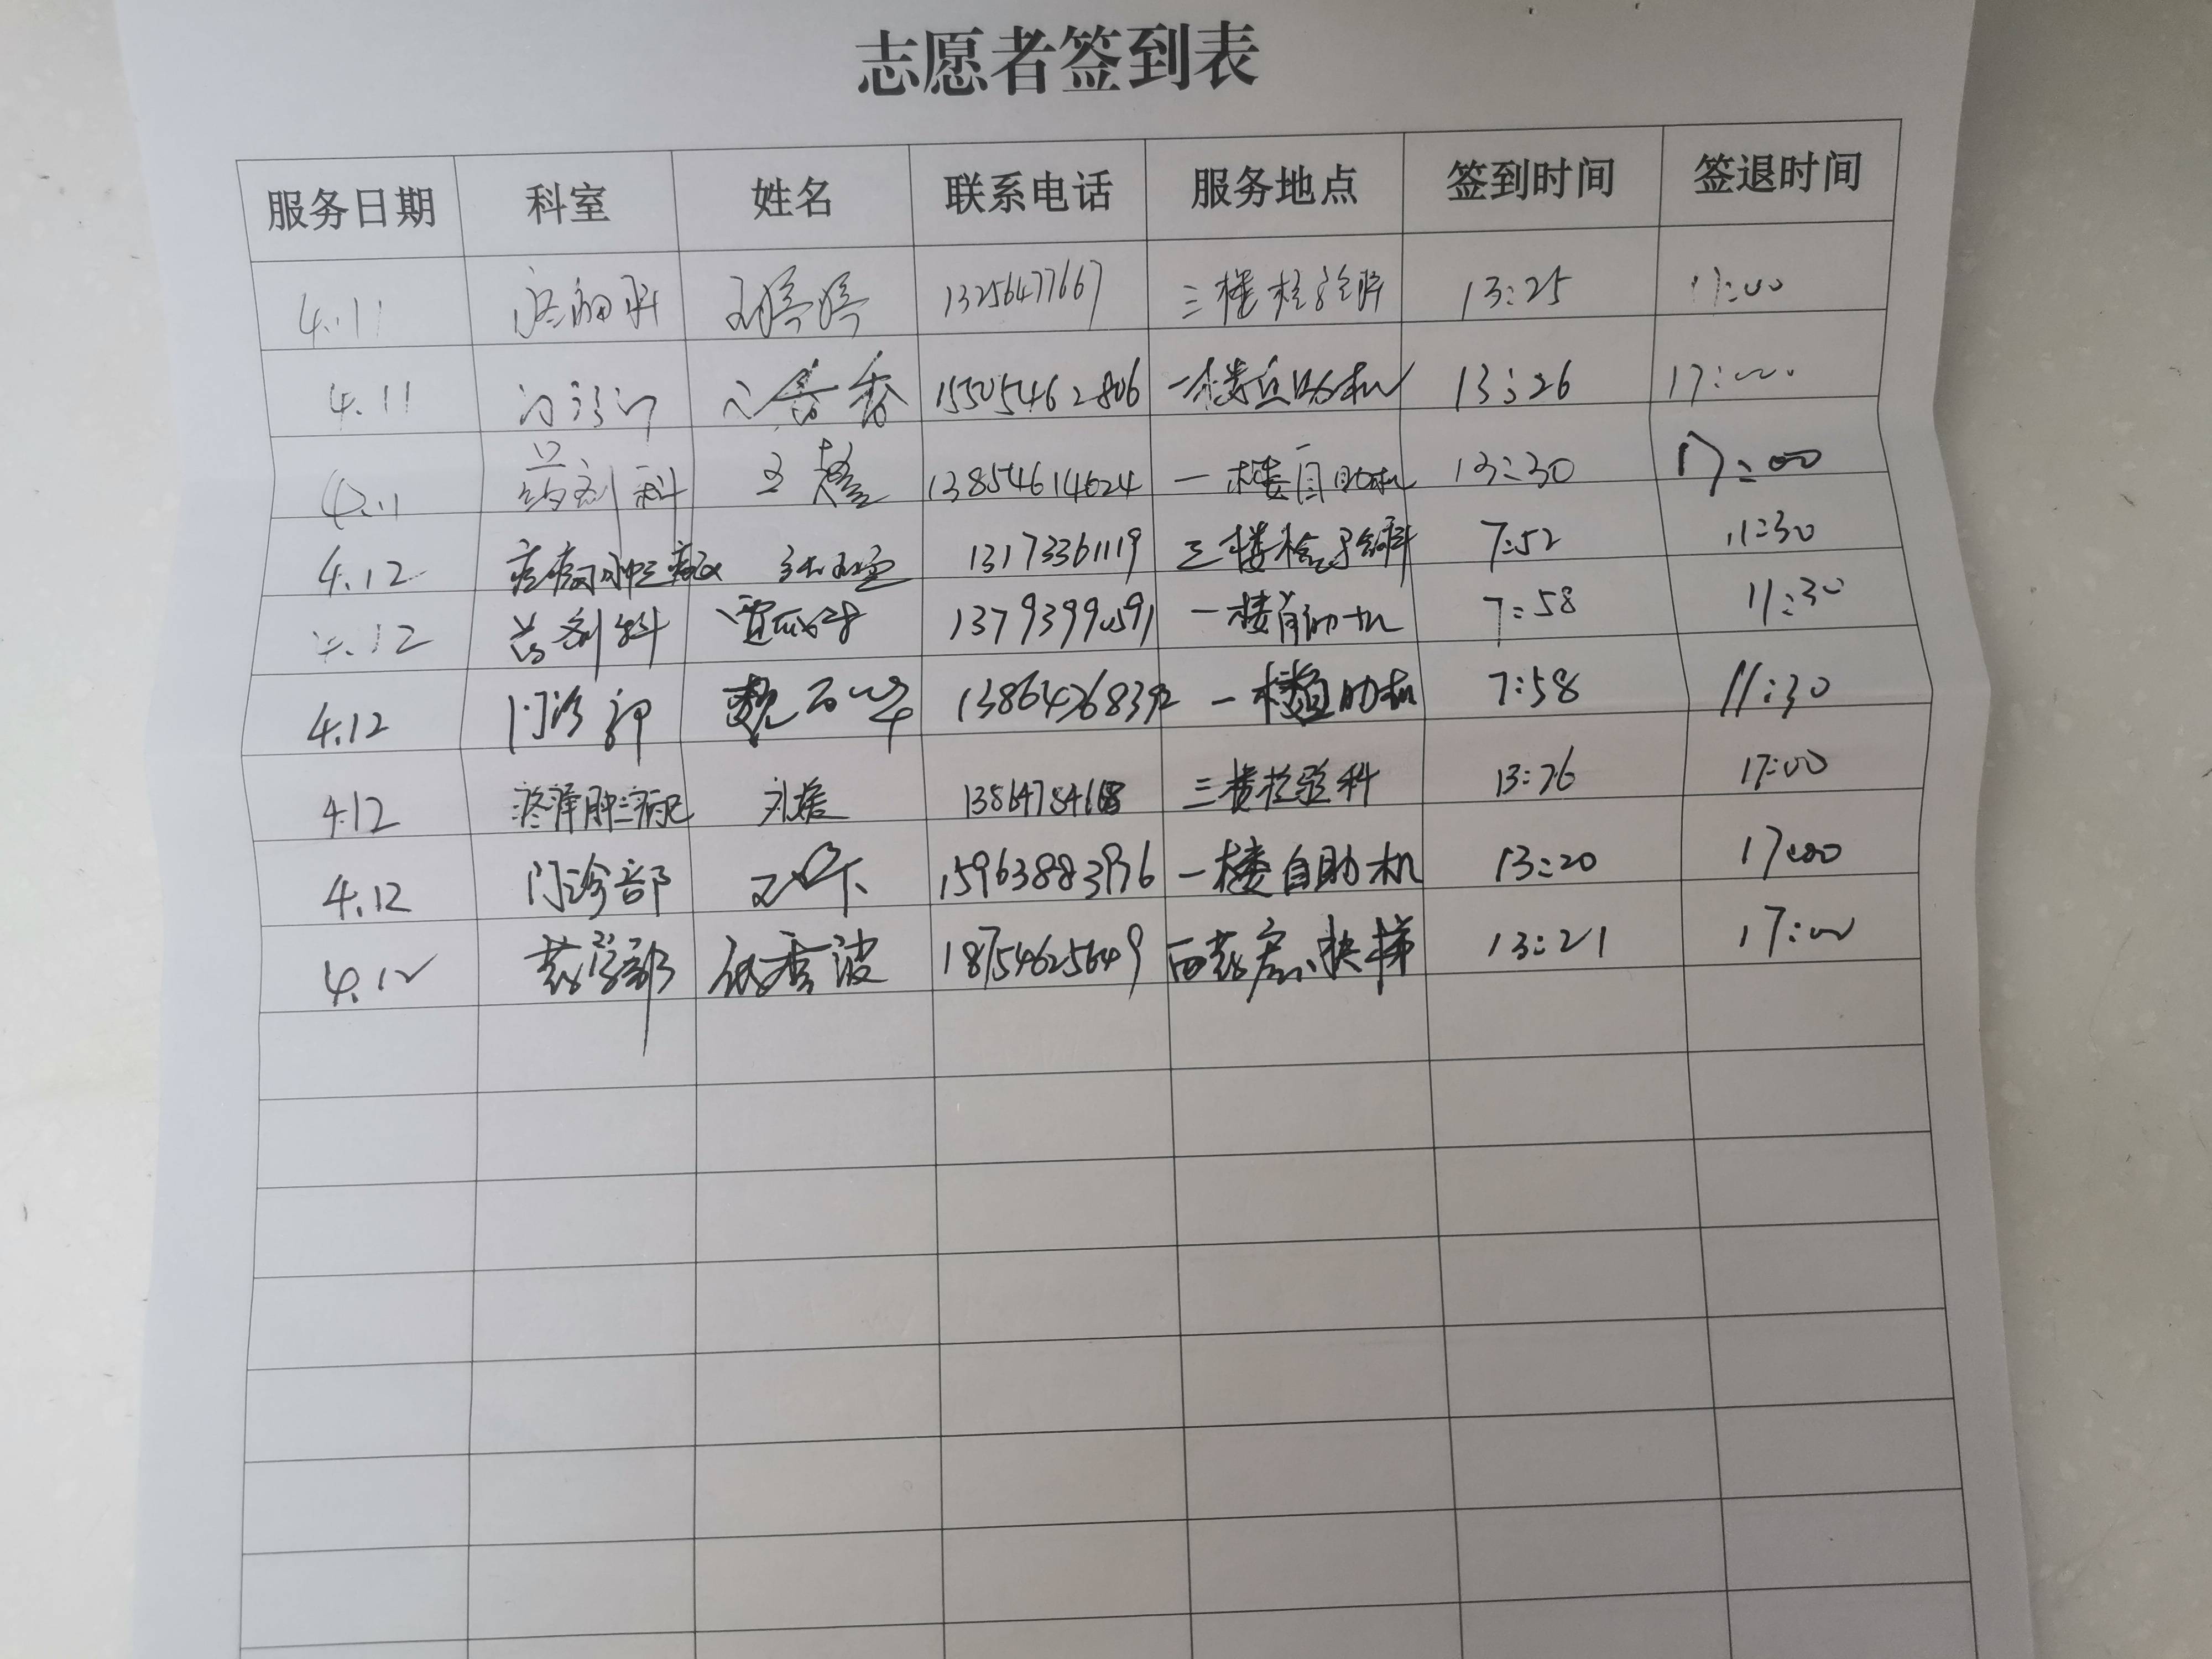 志愿者签到表
服务日期 科室 姓名 联系电话 服务地点 签到时间 签退时间
4.11 王婷婷 13256477667 三楼检验科 13:25 17:00
4.11 15505462806 一楼自助机 13:26 17:00
4.11 药剂科 王 13854614624 一楼自助机 13:30 17:00
4.12 疼痛肿瘤 13173361119 三楼检验科 7:52 11:30
4.12 药剂科 贾 13793990591 一楼自助机 7:58 11:30
4.12 门诊部 魏 一楼自助机 7:58 11:30
4.12 刘 三楼检验科 13:26 17:00
4.12 门诊部 15963883976 一楼自助机 13:20 17:00
4.12 药学部 18754625649 西药房、扶梯 13:21 17:00